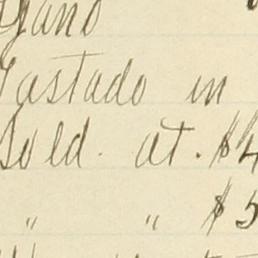 Gano
Gastado in
Sold. at. $4
" " $5